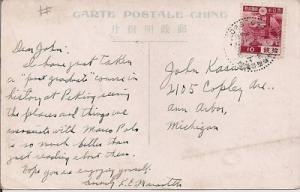 CARTE POSTALE-CHINE
Dear John.
I have just taken
a "post graduate" course in
history at Peking seeing
the places and things we
associate with Marco Polo
is so much better than
just reading about them.
Hope you are enjoying yourself.
John
2105 Copley Ave..
Ann Arbor,
Michigan
10